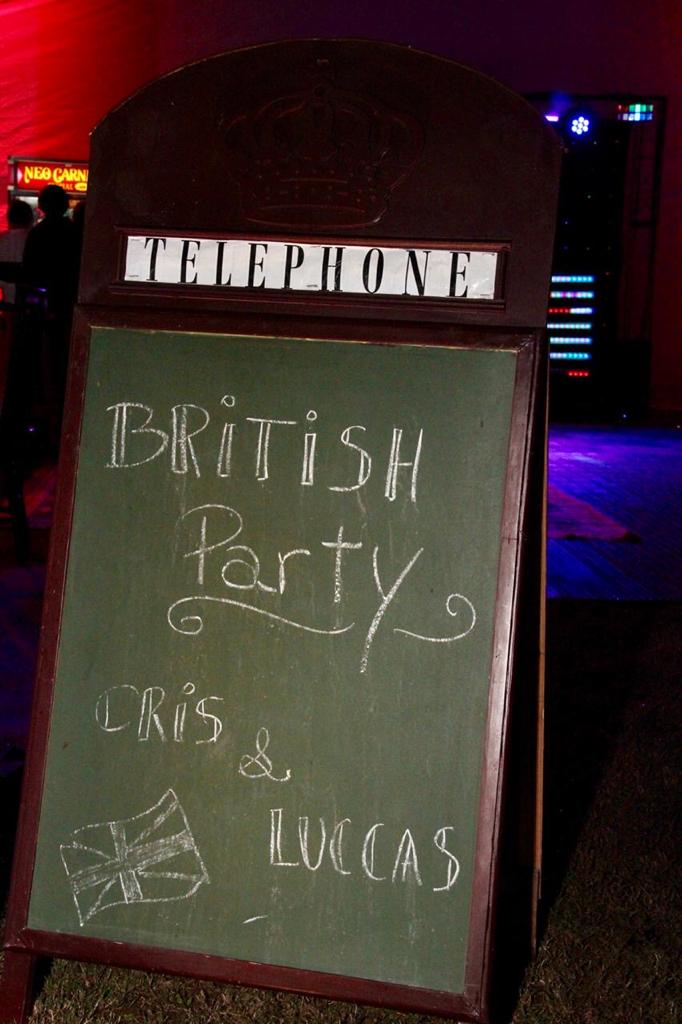 NEO CARN
TELEPHONE
BRiTiSH
Party
CRiS
&
LUCCAS